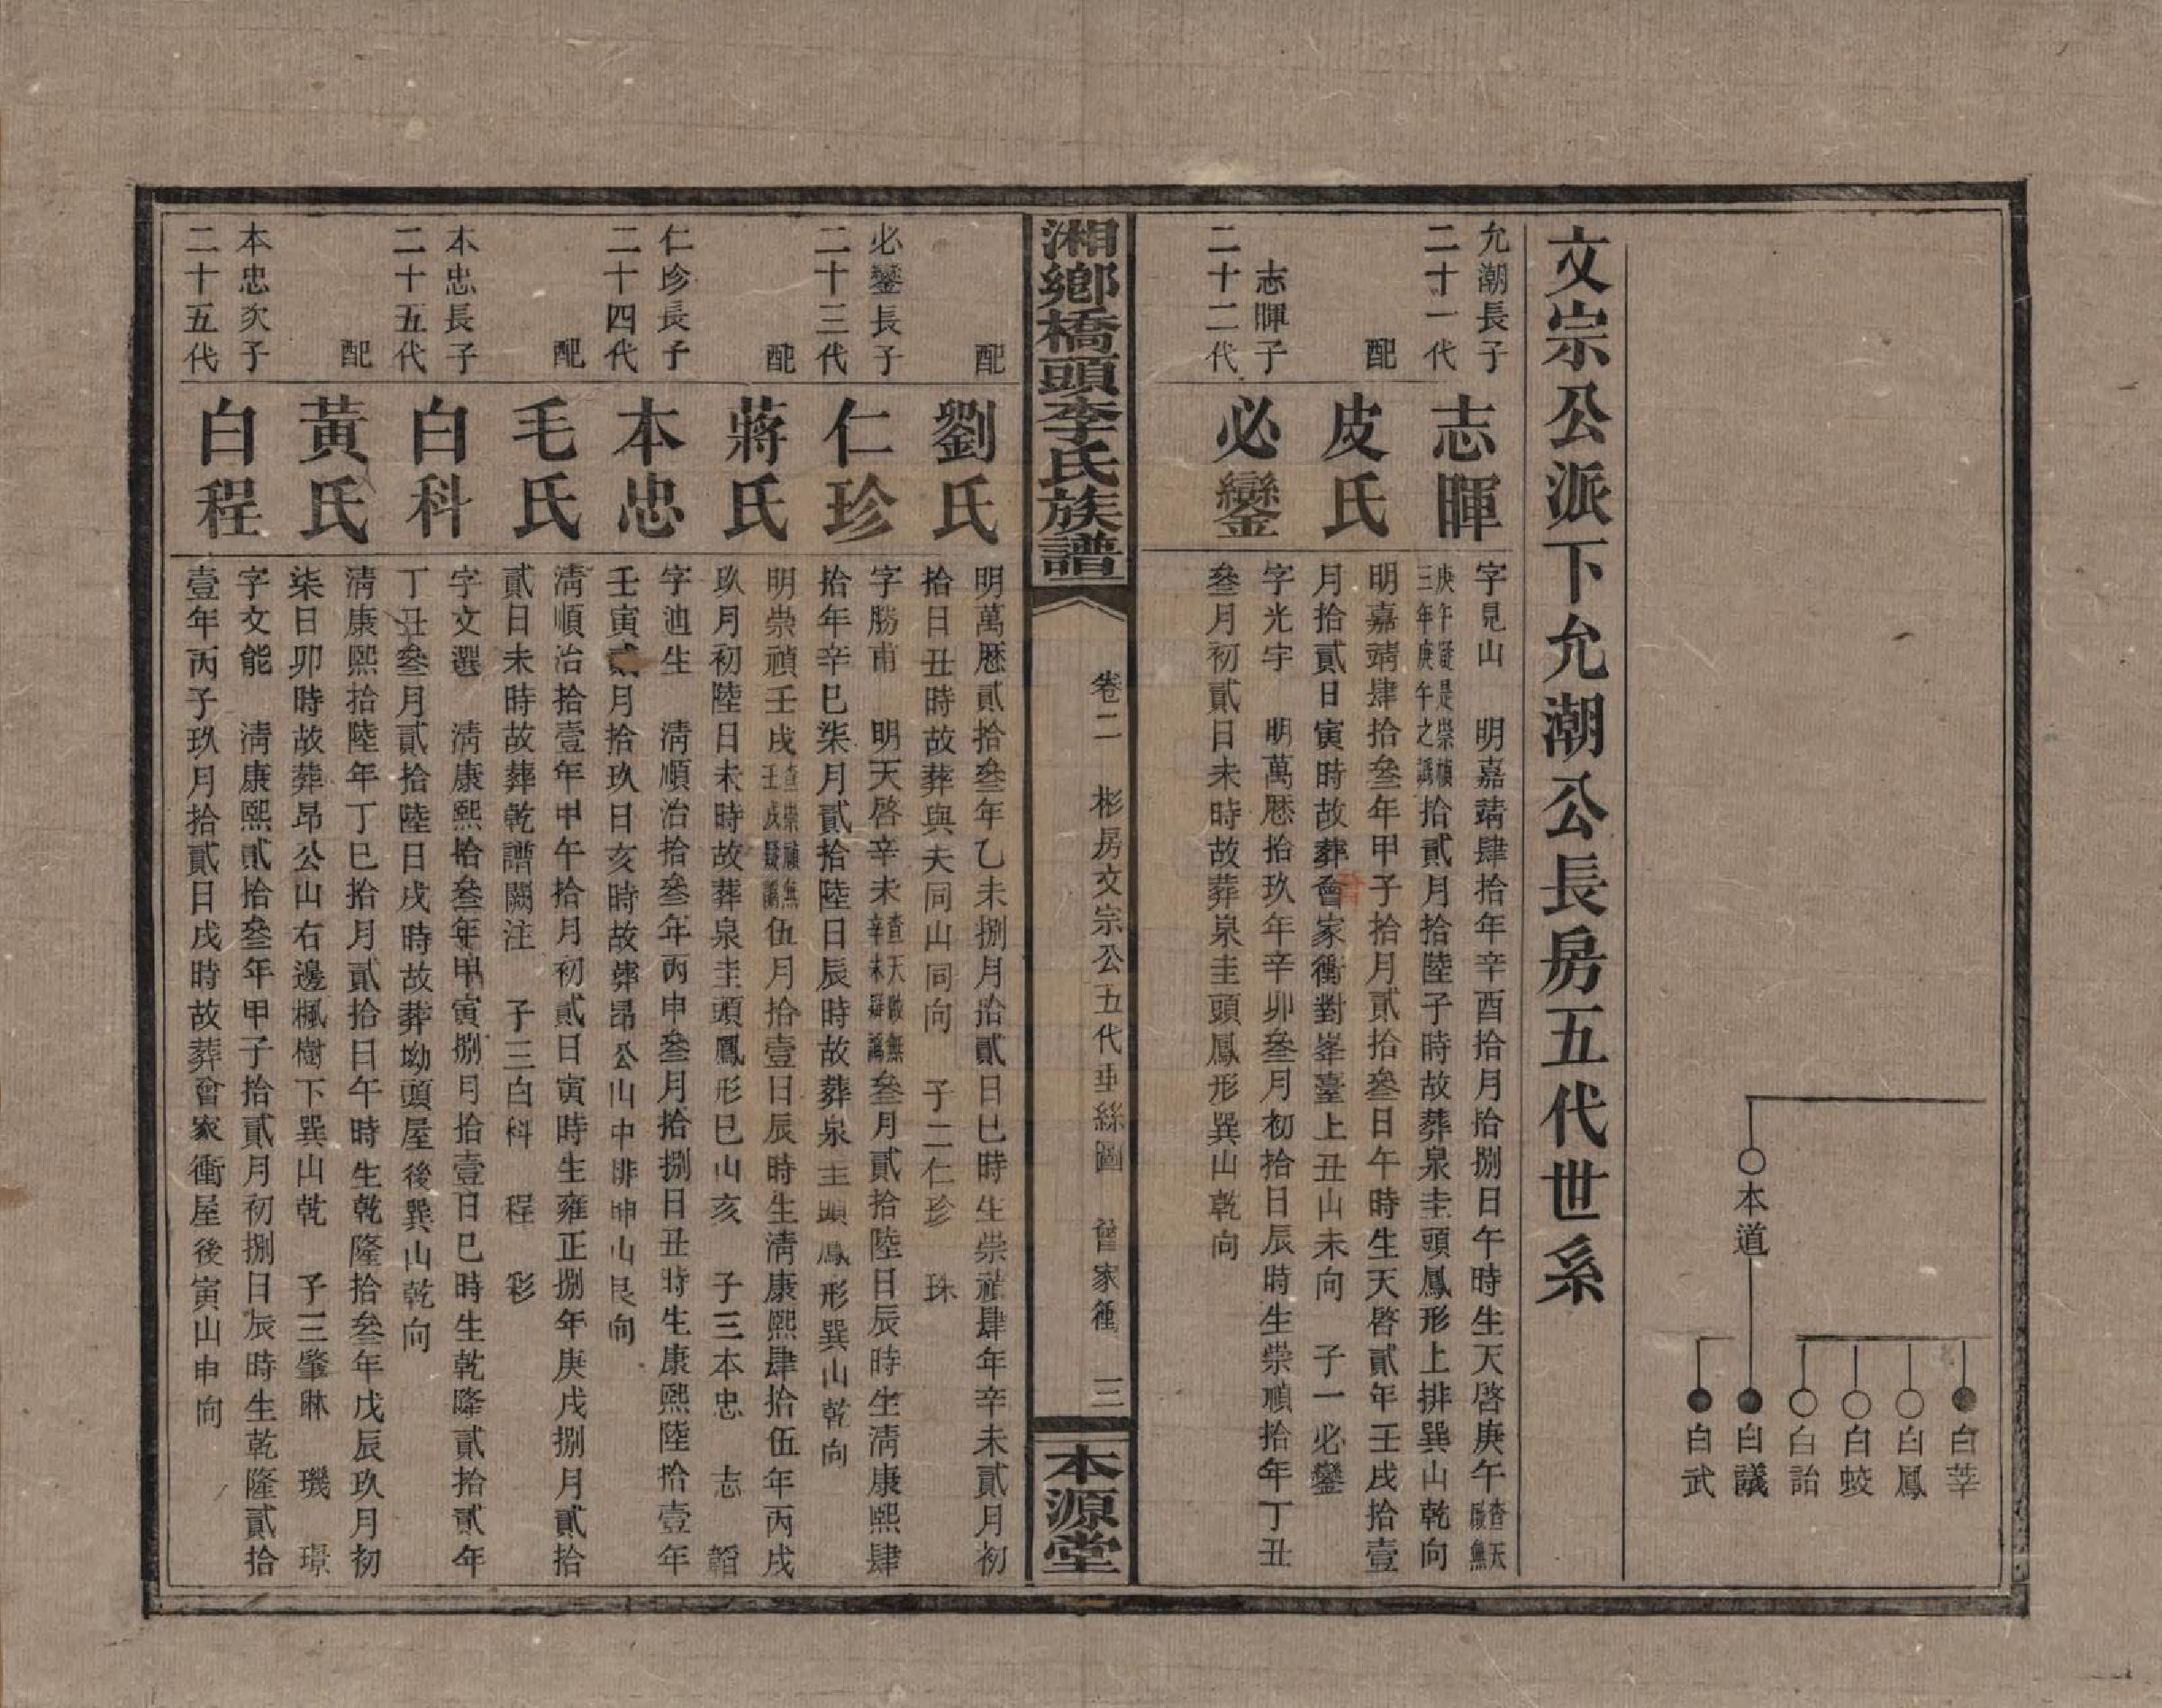 本道
白莘
白鳳
白蛟
白詒
白議
白武
文宗公派下允潮公長房五代世系
允潮長子
二十一代
志暉
字見山　明嘉靖肆拾年辛酉拾月拾捌日午時生天啓庚午查天啟無
庚午疑是崇禎三年庚午之譌拾貳月拾陸子時故葬泉圭頭鳳形上排巽山乾向
配
皮氏
明嘉靖肆拾叁年甲子拾月貳拾叁日午時生天啓貳年壬戌拾壹
月拾貳日寅時故葬會家衝對峯臺上丑山未向　子一必鑾
志暉子
二十二代
必鑾
字光宇　明萬歷拾玖年辛卯叁月初拾日辰時生崇禎拾年丁丑
叁月初貳日未時故葬泉圭頭鳳形巽山乾向
湘鄉橋頭李氏族譜
卷二　彬房文宗公五代垂絲圖　曾家衝　三
本源堂
配
劉氏
明萬歷貳拾叁年乙未捌月拾貳日巳時生崇禎肆年辛未貳月初
拾日丑時故葬與夫同山同向　子二仁珍　珠
必鑾長子
二十三代
仁珍
字勝甫　明天啓辛未查天啟無辛未疑譌叁月貳拾陸日辰時生清康熙肆
拾年辛巳柒月貳拾陸日辰時故葬泉圭頭鳳形巽山乾向
配
蔣氏
明崇禎壬戌查崇禎無壬戌疑譌伍月拾壹日辰時生清康熙肆拾伍年丙戌
玖月初陸日未時故葬泉圭頭鳳形巳山亥　子三本忠　志　韜
仁珍長子
二十四代
本忠
字迪生　清順治拾叁年丙申叁月拾捌日丑時生康熙陸拾壹年
壬寅貳月拾玖日亥時故葬昂公山中排坤山艮向
配
毛氏
清順治拾壹年甲午拾月初貳日寅時生雍正捌年庚戌捌月貳拾
貳日未時故葬乾譜闕注　子三白科　程　彩
本忠長子
二十五代
白科
字文選　清康熙拾叁年甲寅捌月拾壹日巳時生乾隆貳拾貳年
丁丑叁月貳拾陸日戌時故葬坳頭屋後巽山乾向
配
黃氏
清康熙拾陸年丁巳拾月貳拾日午時生乾隆拾叁年戊辰玖月初
柒日卯時故葬昂公山右邊楓樹下巽山乾　子三肇琳　璣　璟
本忠次子
二十五代
白程
字文能　清康熙貳拾叁年甲子拾貳月初捌日辰時生乾隆貳拾
壹年丙子玖月拾貳日戌時故葬會家衝屋後寅山申向